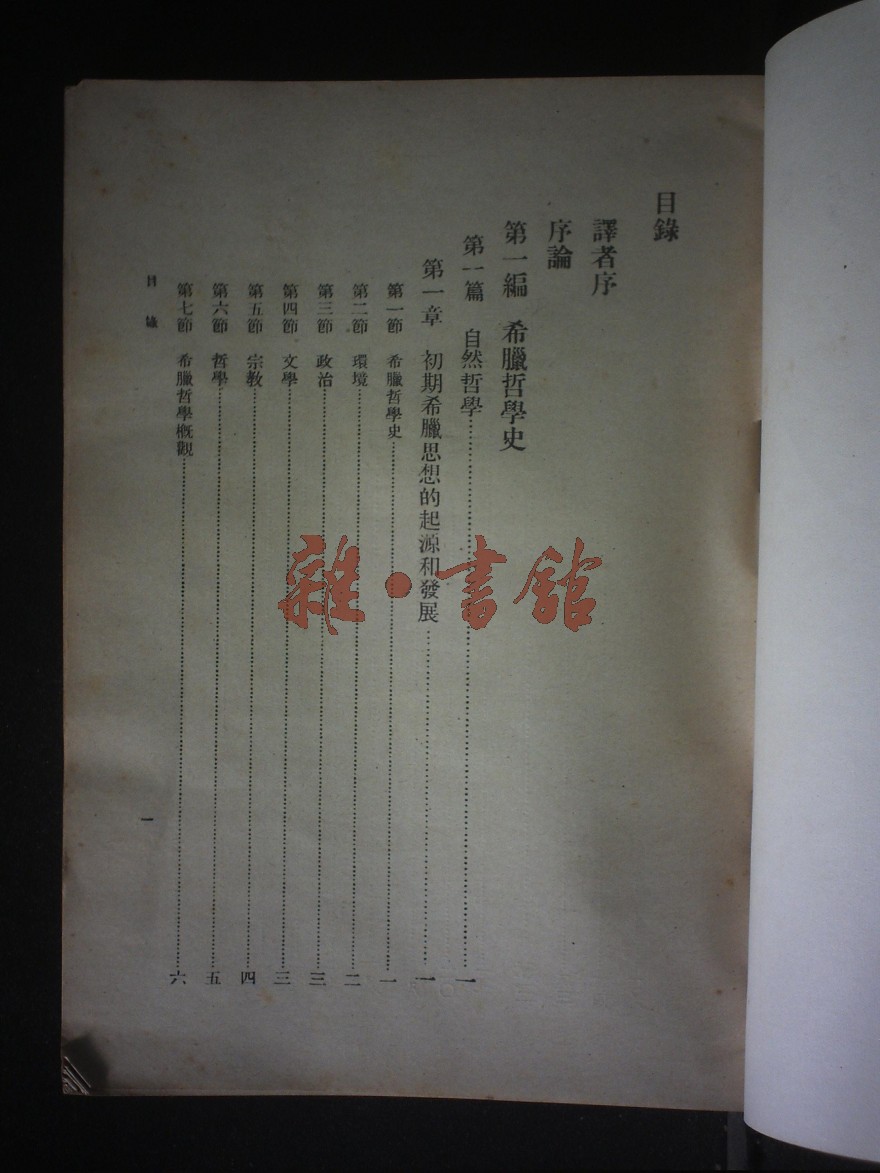 目錄
譯者序
序論
第一編　希臘哲學史
第一篇　自然哲學……一
第一章　初期希臘思想的起源和發展……一
第一節　希臘哲學史……一
第二節　環境……二
第三節　政治……三
第四節　文學……三
第五節　宗教……四
第六節　哲學……五
第七節　希臘哲學概觀……六
目錄　一
雜·書館